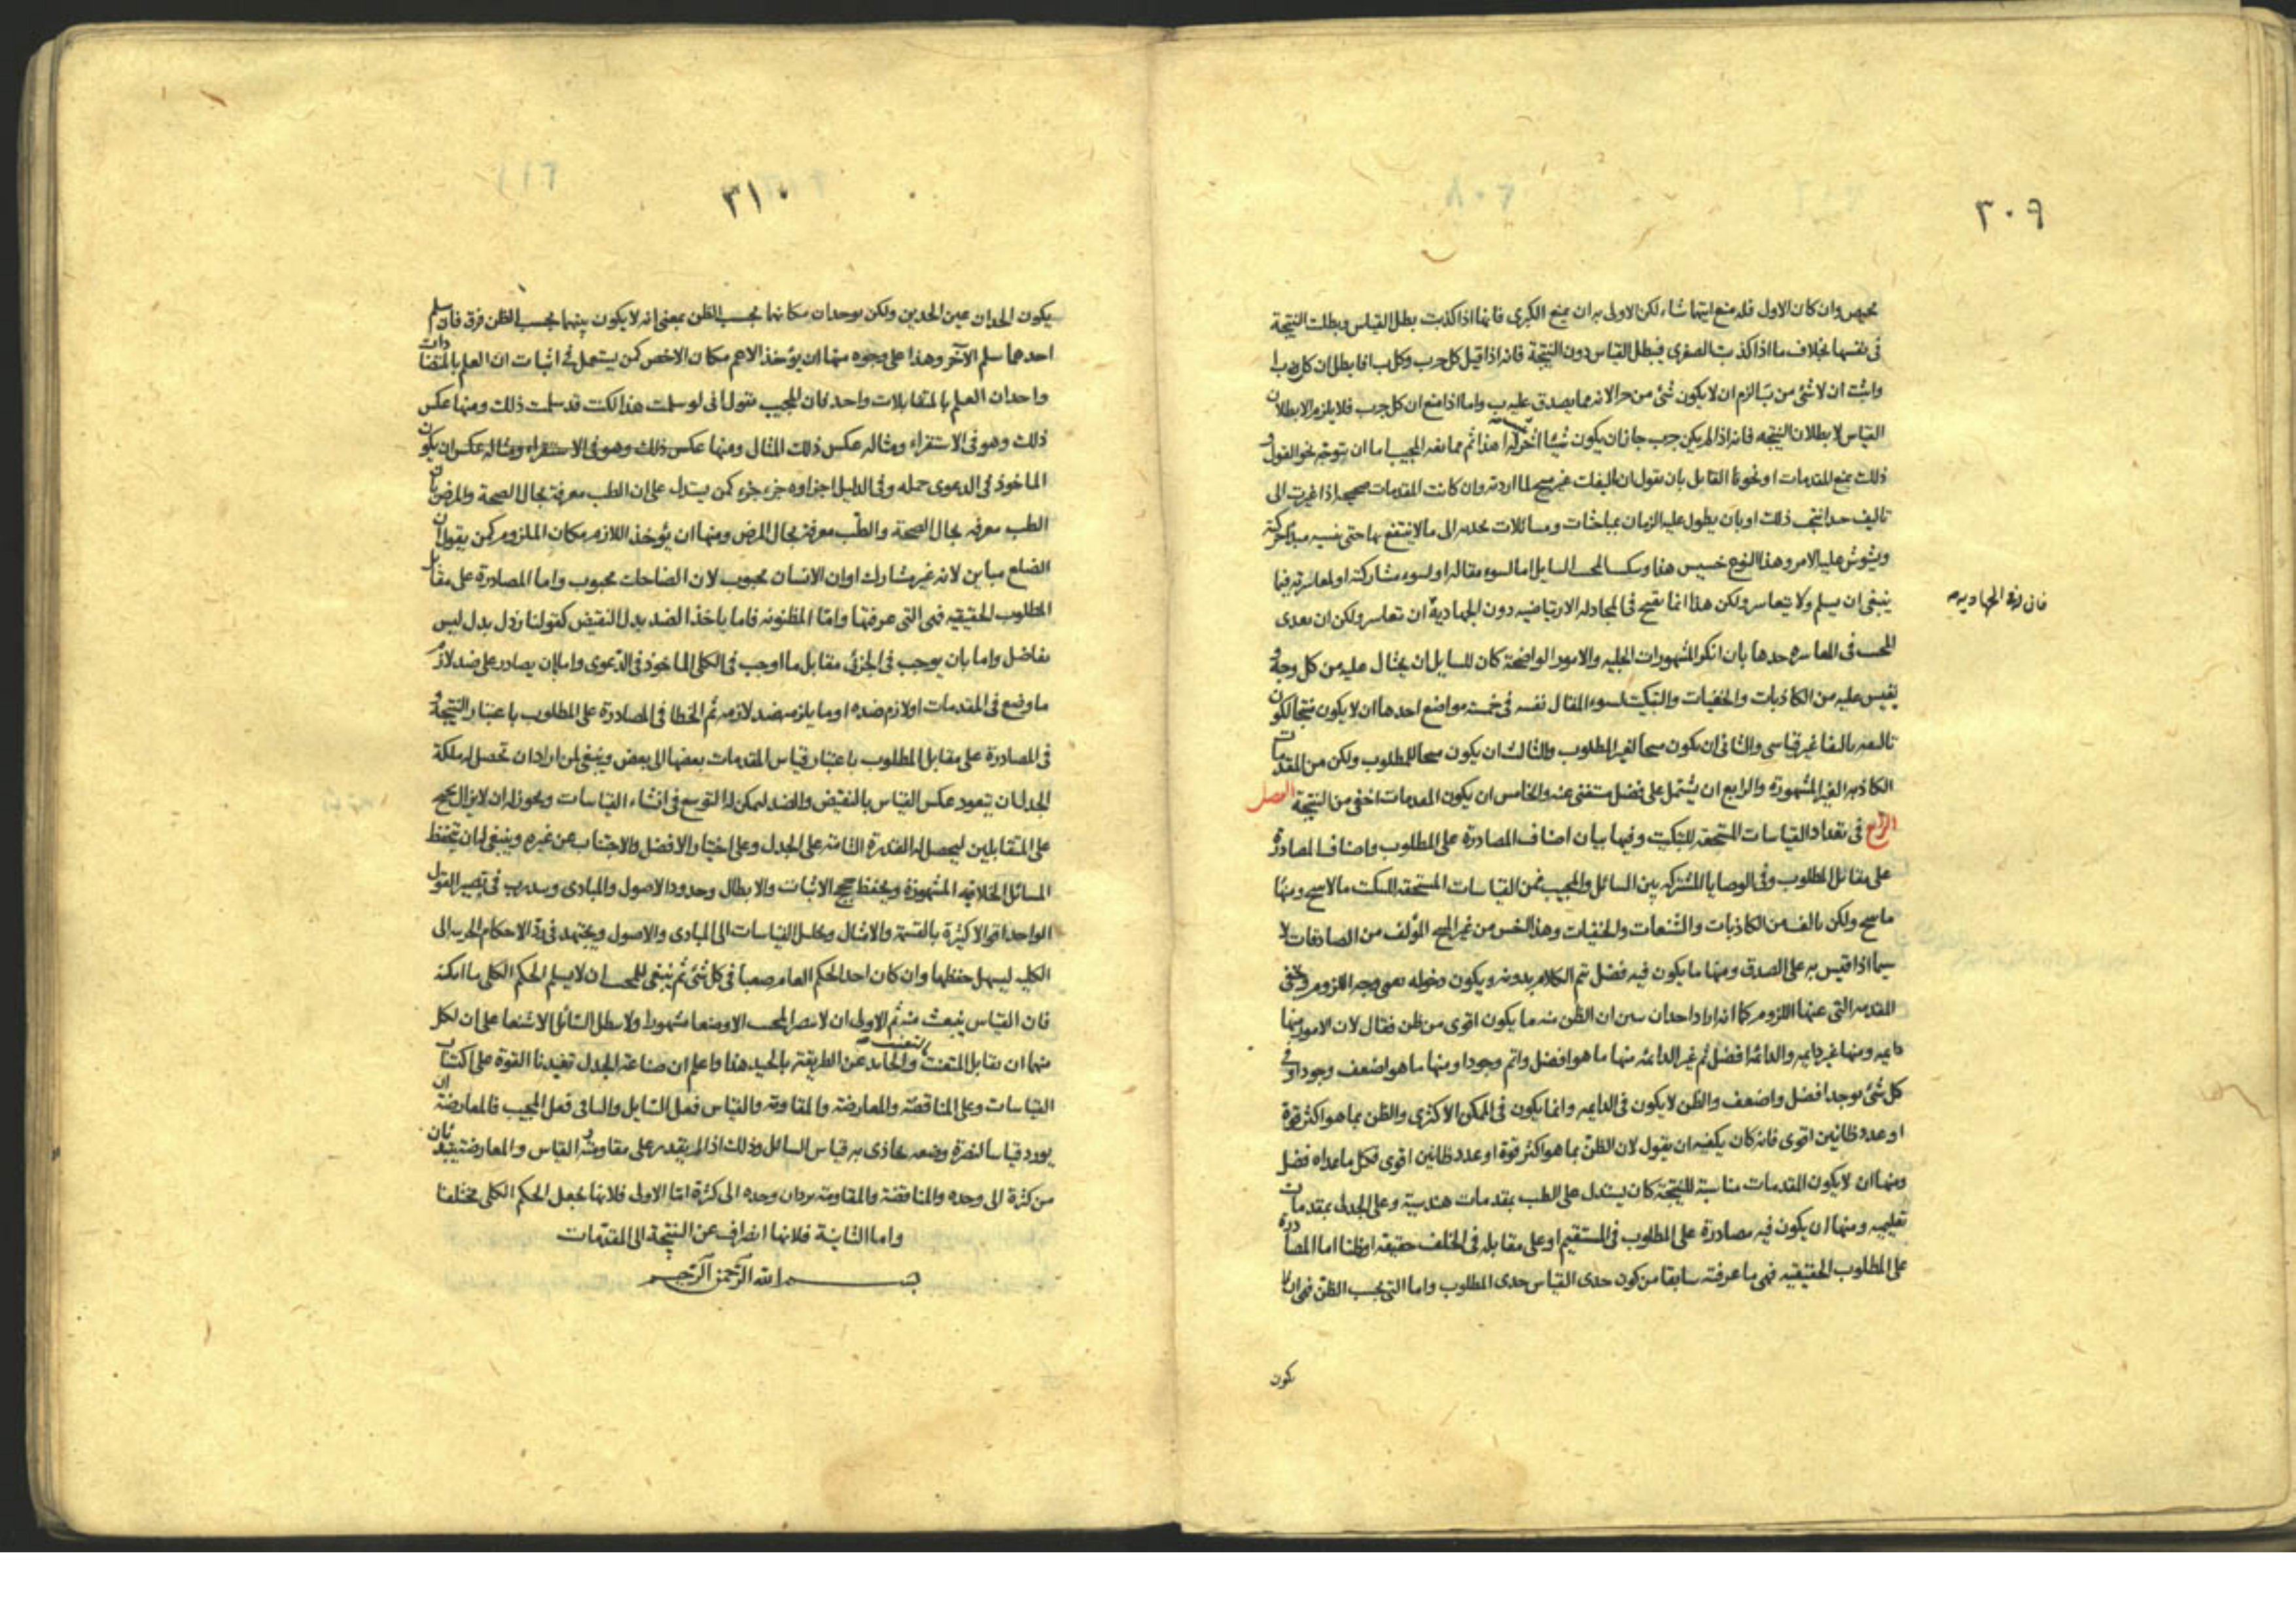 ٣٠٩
وان كان الاول فله منع ايتهما شاء لكن الاولى به ان يمنع الكبرى فانها اذا كذبت بطل القياس وبطلت النتيجة
فى نفسها بخلاف ما اذا كذبت الصغرى فبطل القياس دون النتيجة فانه اذا قيل كل ج ب وكل ب ا فابطل ان كل ب ا
واثبت ان لا شئ من ب ا لزم ان لا يكون شئ من ج ا لانه مما يصدق عليه ب واما اذا منع ان كل ج ب فلا يلزم الا بطلان
القياس لا بطلان النتيجه فانه اذا لم يكن ج ب جاز ان يكون شيئا آخر له ا هذا ثم ممانعه المجيب اما ان يتوجه نحو القول و
ذلك بمنع المقدمات او نحو القايل بان يقول ان تاليفك غير منتج لما اردته وان كانت المقدمات صحيحه اذا غيرت الى
تاليف حد انتج ذلك او بان يطول عليه الزمان بمباحثات ومسائلات الى ما لا ينتفع بها حتى
ويشوش عليه الامر وهذا النوع خسيس هذا السايل اما لسوء مقاله او لسوء مشاركته او لمعاسرته فيما
ينبغى ان يسلم ولا يتعاسر ولكن هذا انما يقبح فى المجادله الارتياضيه دون الجهادية ان تعاسر ولكن ان تعدى
فان فى الجهاديه
المجيب فى المعاسره حدها بان انكر المشهورات الجليه والامور الواضحة كان للسايل ان يحتال عليه من كل وجه و
يقيس عليه من الكاذبات والخفيات والتبكيت لسوء المقال نفسه فى خمسة مواضع احدها ان لا يكون منتجا لكون
تاليفه تاليفا غير قياسى والثانى ان يكون منتجا لغير المطلوب والثالث ان يكون منتجا للمطلوب ولكن من المقدمات
الكاذبه الغير المشهورة والرابع ان يشتمل على فضل مستغنى عنه والخامس ان يكون المقدمات اخفى من النتيجة الفصل
الرابع فى تعداد القياسات المستحقه للتبكيت وفيها بيان اصناف المصادرة على المطلوب واصناف المصادرة
على مقابل المطلوب وفى الوصايا المشتركه بين السائل والمجيب فمن القياسات المستحقه للتبكيت ما لا ينتج ومنها
ما ينتج ولكن تالف من الكاذبات والشنعات والخفيات وهذا اخس من غير المنتج المؤلف من الصادقات لا
سيما اذا قيس به على الصدق ومنها ما يكون فيه فضل تم الكلام بدونه ويكون دخوله وجه اللزوم وتخفى
المقدمه التى عنها اللزوم كما انه اراد احدان ان الظن منه ما يكون اقوى من ظن فقال لان الامور منها
دايمه ومنها غير دايمه والدائمة افضل ثم غير الدائمه منها ما هو افضل واتم وجودا ومنها ما هو اضعف وجودا وفى
كل شئ يوجد افضل واضعف والظن لا يكون فى الدايمه وانما يكون فى الممكن الاكثرى والظن بما هو اكثر قوة
او عدد ظانين اقوى فانه كان يكفيه ان يقول لان الظن بما هو اكثر قوة او عدد ظانين اقوى فكل ما عداه فضل
ومنها ان لا يكون المقدمات مناسبة للنتيجة كان يستدل على الطب بمقدمات هندسية وعلى الجدل بمقدمات
تعليميه ومنها ان يكون فيه مصادرة على المطلوب فى المستقيم او على مقابله فى الخلف حقيقه او ظنا اما المصادرة
على المطلوب الحقيقيه فهى ما عرفته سابقا من كون حدى القياس حدى المطلوب واما التى بحسب الظن فهى ان لا
يكون
٣١٠
يكون الحدان عين الحدين ولكن يوجدان مكانهما بحسب الظن بمعنى انه لا يكون بينهما بحسب الظن فرق فان من سلم
احدها سلم الآخر وهذا على وجوه منها ان يؤخذ الاعم مكان الاخص كمن يستعمل فى اثبات ان العلم بالمتضادات
واحد ان العلم بالمتقابلات واحد فان المجيب يقول انى لو سلمت هذا لكنت قد سلمت ذلك ومنها عكس
ذلك وهو فى الاستقراء ومثاله عكس ذلك المثال ومنها عكس ذلك وهو فى الاستقراء ومثاله عكس ان يكون
الماخوذ فى الدعوى جمله وفى الدليل اجزاوه جزء جزء كمن يستدل على ان الطب معرفة بحال الصحة والمرض بان
الطب معرفه بحال الصحة والطب معرفة بحال المرض ومنها ان يؤخذ اللازم مكان الملزوم كمن يقول ان
الضلع مباين لانه غير مشارك او ان الانسان محبوب لان الضاحك محبوب واما المصادرة على مقابل
المطلوب الحقيقيه فهى التى عرفتها وامّا المظنونه فاما ياخذ الضد بدل النقيض كقولنا رذل بدل ليس
بفاضل واما بان يوجب فى الجزئى مقابل ما اوجب فى الكلى الماخوذ فى الدعوى واما بان يصادر على ضد لازم
ما وضع فى المقدمات او لازم ضده او ما يلزمه ضد لازمه ثم الخطا فى المصادرة على المطلوب باعتبار النتيجة و
فى المصادرة على مقابل المطلوب باعتبار قياس المقدمات بعضها الى بعض وينبغى لمن اراد ان تحصل له ملكة
الجدل ان يتعود عكس القياس بالنقيض والضد ليمكن له التوسع فى انشاء القياسات ويحوز له ان لا يزال يحتج
على المتقابلين ليحصل له القدرة التامة على الجدل وعلى اختيار الافضل والاجتناب عن غيره وينبغى له ان يتحفظ
المسائل الخلافيه المشهورة ويحفظ حجج الاثبات والابطال وحدود الاصول والمبادى ويتدرب فى تصيير القول
الواحد اقوالا كثيرة بالقسمة والامثال وتحليل القياسات الى المبادى والاصول ويجتهد فى رد الاحكام الجزئيه الى
الكليه ليسهل حفظها وان كان اخذ الحكم العام صعبا فى كل شئ ثم ينبغى للمجيب ان لا يسلم الحكم الكلى ما امكنه
فان القياس ينبعث منه ثم الاولى ان لا المجيب الا وضعا مشهورا ولا يبطل السائل الا شنعا على ان لكل
منهما ان يقابل المتعنت والحايد عن الطريقة بالحيد هذا واعلم ان صناعة الجدل تفيدنا القوة على اكتساب
القياسات وعلى المناقضة والمعارضة والمقاومة والقياس فعل السايل والباقى فعل المجيب فالمعارضة ان
يورد قياسا لنصرة وضعه يحاذى به قياس السائل وذلك اذا لم يقدر على مقاومة القياس والمعارضة يفيدان
من كثرة الى وحده والمناقضة والمقاومة يردان وحده الى كثرة امّا الاولى فلانها يجعل الحكم الكلى مختلفا
واما الثانية فلانها انصراف عن النتيجة الى المقدّمات
بسم الله الرّحمن الرّحيم